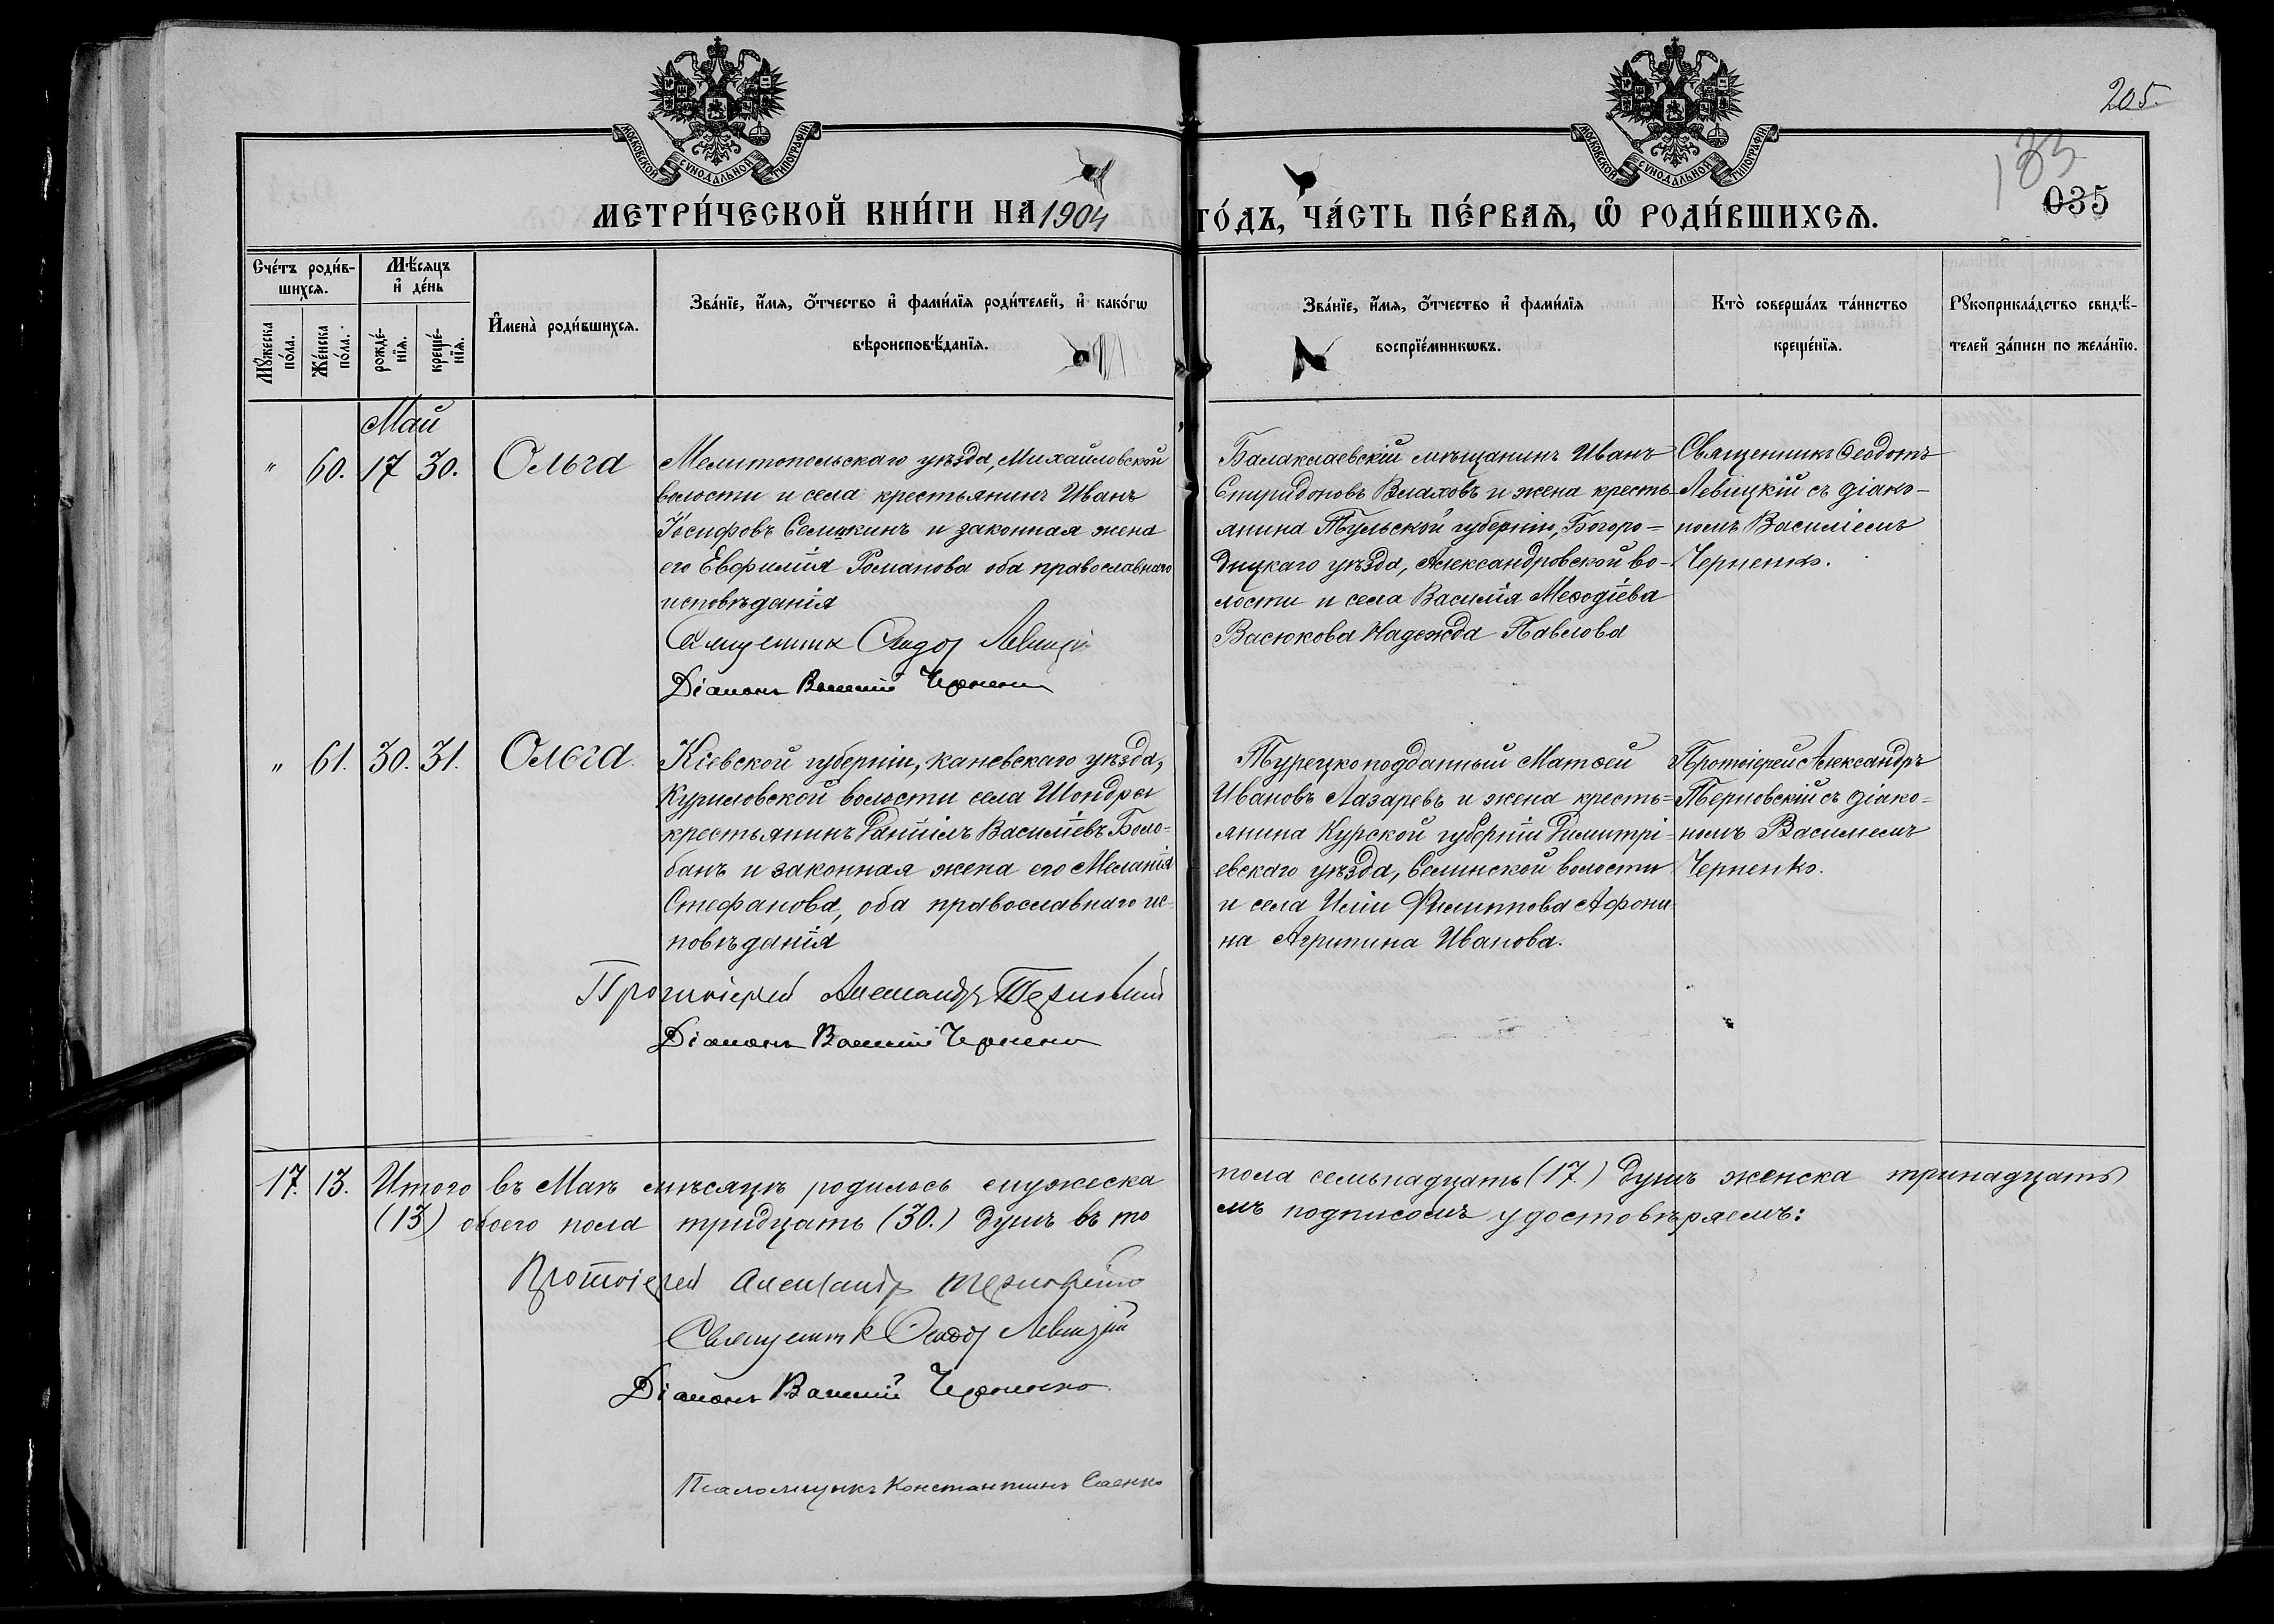 205.
133
035
МОСКОВСКОЙ СѴНОДАЛЬНОЙ ТИПОГРАФІИ
МОСКОВСКОЙ СѴНОДАЛЬНОЙ ТИПОГРАФІИ
МЕТРИ́ЧЕСКОЙ КНИ́ГИ НА 1904 ГО́ДЪ, ЧА́СТЬ ПЕ́РВАѦ, Ѡ РОДИ́ВШИХСѦ.
Сче́тъ роди́в-
шихсѧ.
Мꙋжеска по́ла.
Же́нска по́ла.
Мѣ́сѧцъ
и҆ де́нь
рожде́-
нїѧ.
креще́-
нїѧ.
И҆мена̀ роди́вшихсѧ.
Зва́нїе, и҆́мѧ, ѻ҆́тчество и҆ фами́лїѧ роди́телей, и҆ како́гѡ
вѣроисповѣ́данїѧ.
Зва́нїе, и҆́мѧ, ѻ҆́тчество и҆ фами́лїѧ
воспрїе́мникѡвъ.
Кто̀ соверша́лъ та́инство
креще́нїѧ.
Рꙋкоприкла́дство свидѣ́-
телей за́писи по жела́нїю.
Май
" 60. 17 30. Ольга
Мелитопольскаго уѣзда, Михайловской
волости и села крестьянинъ Иванъ
Іосифовъ Семикинъ и законная жена
его Евфимія Романова оба православнаго
исповѣданія
Священник Феодот Левицкій
Діаконъ Василій Черненко
Балаклаевскій мѣщанинъ Иванъ
Спиридоновъ Влаховъ и жена кресть-
янина Тульской губерніи, Богоро-
дицкаго уѣзда, Александровской во-
лости и села Василія Меѳодіева
Васюкова Надежда Павлова
Священникъ Ѳеодотъ
Левицкій съ діако-
номъ Василіемъ
Черненко.
" 61. 30. 31. Ольга.
Кіевской губерніи, Каневскаго уѣзда,
Куриловской волости села Шондры
крестьянинъ Даніилъ Василіевъ Боло-
банъ и законная жена его Меланія
Стефанова, оба православнаго ис-
повѣданія
Протоіерей Александръ Терновскій
Діаконъ Василій Черненко
Турецкоподданный Матѳей
Ивановъ Лазаревъ и жена кресть-
янина Курской губерніи Димитрі-
евскаго уѣзда, Селинской волости
и села Иліи Филиппова Афони-
на Агрипина Иванова.
Протоіерей Александръ
Терновскій съ діако-
номъ Василіемъ
Черненко.
17. 13. Итого въ Маѣ мѣсяцѣ родилось мужеска пола семьнадцать (17.) душъ женска тринадцать
(13) обоего пола тридцать (30.) душъ въ томъ подписомъ удостовѣряемъ:
Протоіерей Александръ Терновскій
Священник Феодот Левицкій
Діаконъ Василій Черненко
Псаломщикъ Константинъ Саенко